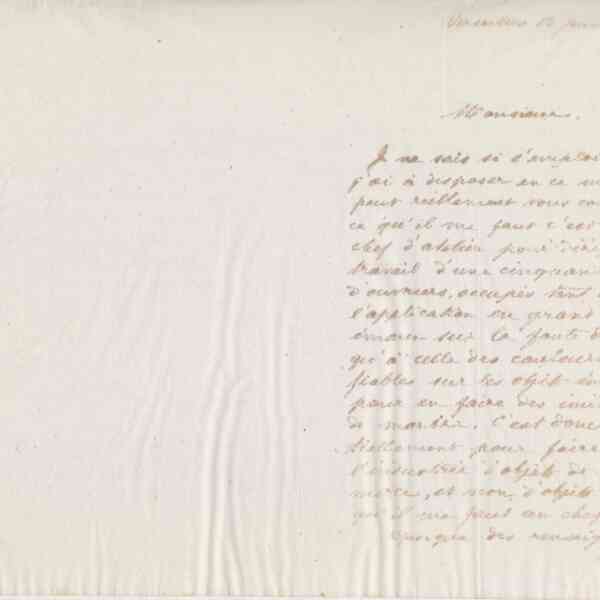 Monsieur.
Je ne sais si l'emploi
j'ai à disposer en ce m
peut réellement vous con
ce qu'il me faut c'est
chef d'atelier pour diri
travail d'une cinquan
d'ouvriers, occupés tant
l'application en grand
émaux sur la fonte
qu'à celle des couleurs
fiables sur les objets ém
pour en faire des imi
de marbre. C'est donc
tiellement pour faire
l'industrie d'objets de
merce, et non d'objets
qu'il me faut un chef
des renseig